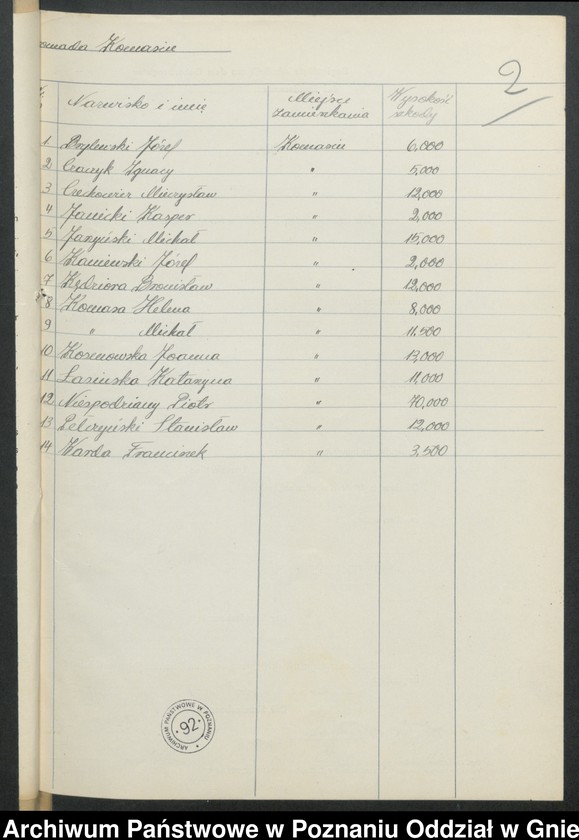 romada Komasin
2
Nazwisko i imię Miejsce zamieszkania Wysokość szkody
1 Brylewski Józef Komasin 6,000
2 Ignacy " 5,000
3 Mieczysław " 12,000
4 Janicki Kasper " 2,000
5 Michał " 15,000
6 Kaniewski Józef " 2,000
7 Kędziora Bronisław " 12,000
8 Komasa Helena " 8,000
9 " Michał " 11,500
10 Joanna " 13,000
11 Łasińska Katarzyna " 11,000
12 Niespodziany Piotr " 70,000
13 Pelczyński Stanisław " 12,000
14 Warda Franciszek " 3,500
ARCHIWUM PAŃSTWOWE W POZNANIU
92
Archiwum Państwowe w Poznaniu Oddział w Gnie